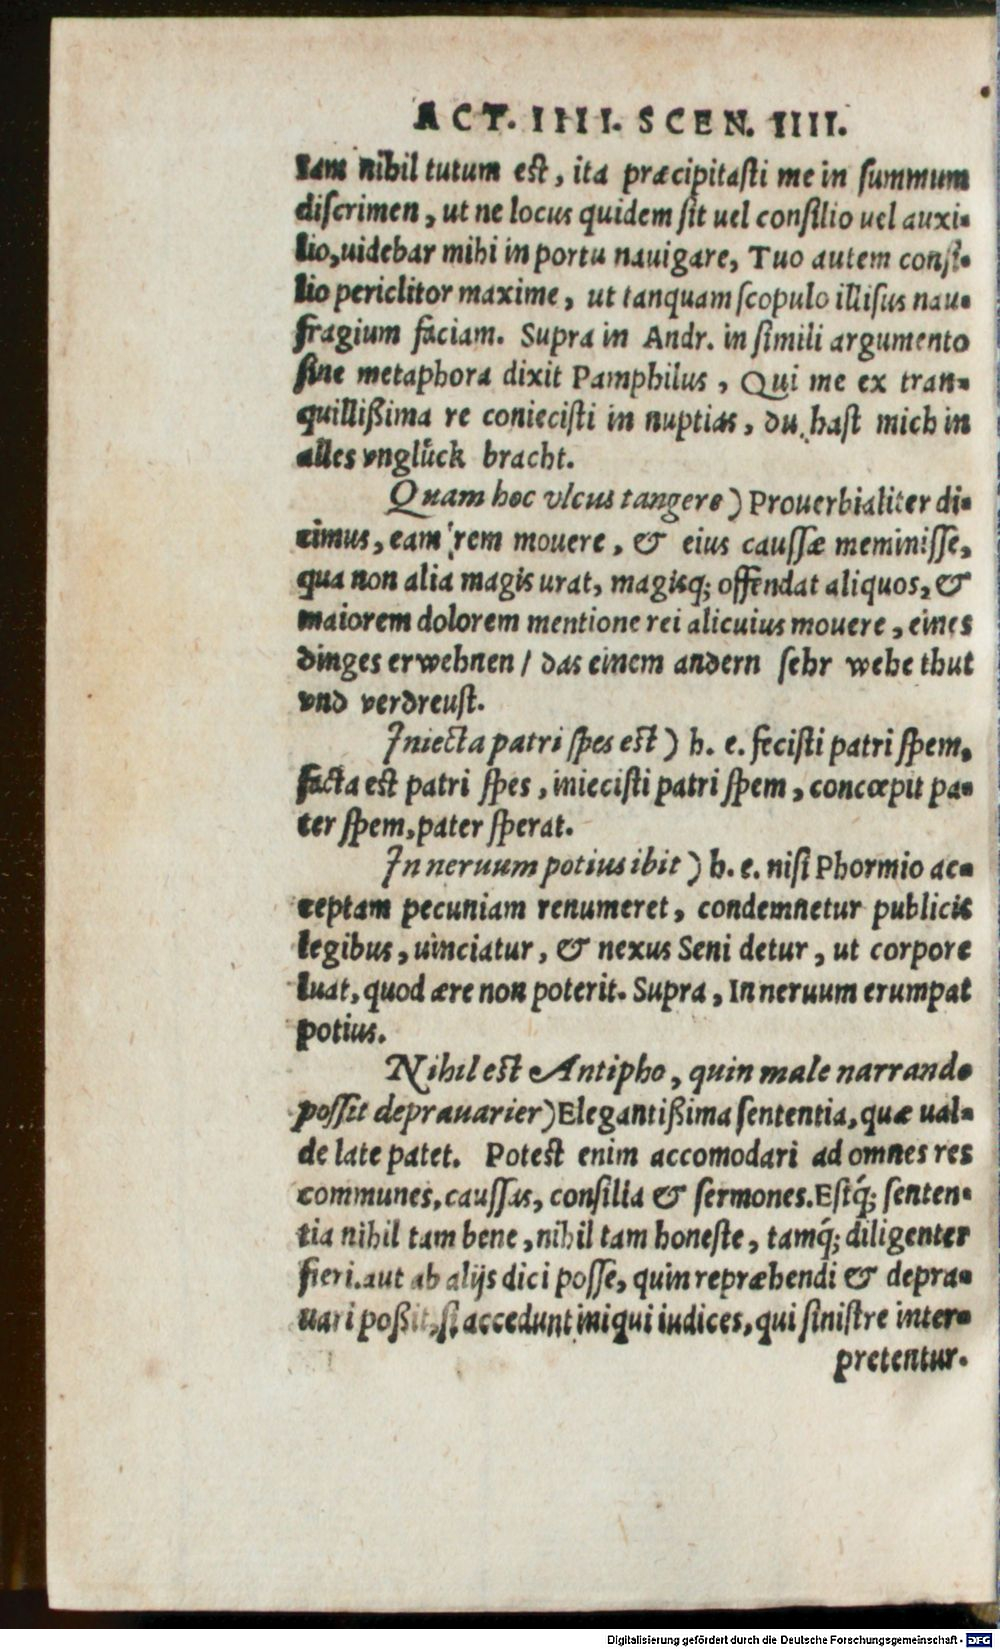 ACT. IIII. SCEN. IIII.
Iam nihil tutum est, ita præcipitasti me in summum
discrimen, ut ne locus quidem sit uel consilio uel auxi-
lio, uidebar mihi in portu nauigare, Tuo autem consi-
lio periclitor maxime, ut tanquam scopulo illisus nau-
fragium faciam. Supra in Andr. in simili argumento
sine metaphora dixit Pamphilus, Qui me ex tran-
quillißima re coniecisti in nuptias, du hast mich in
alles vnglück bracht.
Quam hoc vlcus tangere) Prouerbialiter di-
cimus, eam rem mouere, & eius caussæ meminisse,
qua non alia magis urat, magisq; offendat aliquos, &
maiorem dolorem mentione rei alicuius mouere, eines
dinges erwehnen / das einem andern sehr wehe thut
vnd verdreust.
Iniecta patri spes est) h. e. fecisti patri spem,
facta est patri spes, iniecisti patri spem, concœpit pa-
ter spem, pater sperat.
In neruum potius ibit) h. e. nisi Phormio ac-
ceptam pecuniam renumeret, condemnetur publicis
legibus, uinciatur, & nexus Seni detur, ut corpore
luat, quod ære non poterit. Supra, In neruum erumpat
potius.
Nihil est Antipho, quin male narrando
possit deprauarier) Elegantißima sententia, quæ ual-
de late patet. Potest enim accomodari ad omnes res
communes, caussas, consilia & sermones. Estq́; senten-
tia nihil tam bene, nihil tam honeste, tamq́; diligenter
fieri. aut ab alijs dici posse, quin repræhendi & depra-
uari poßit, si accedunt iniqui iudices, qui sinistre inter-
pretentur.
Digitalisierung gefördert durch die Deutsche Forschungsgemeinschaft - DFG